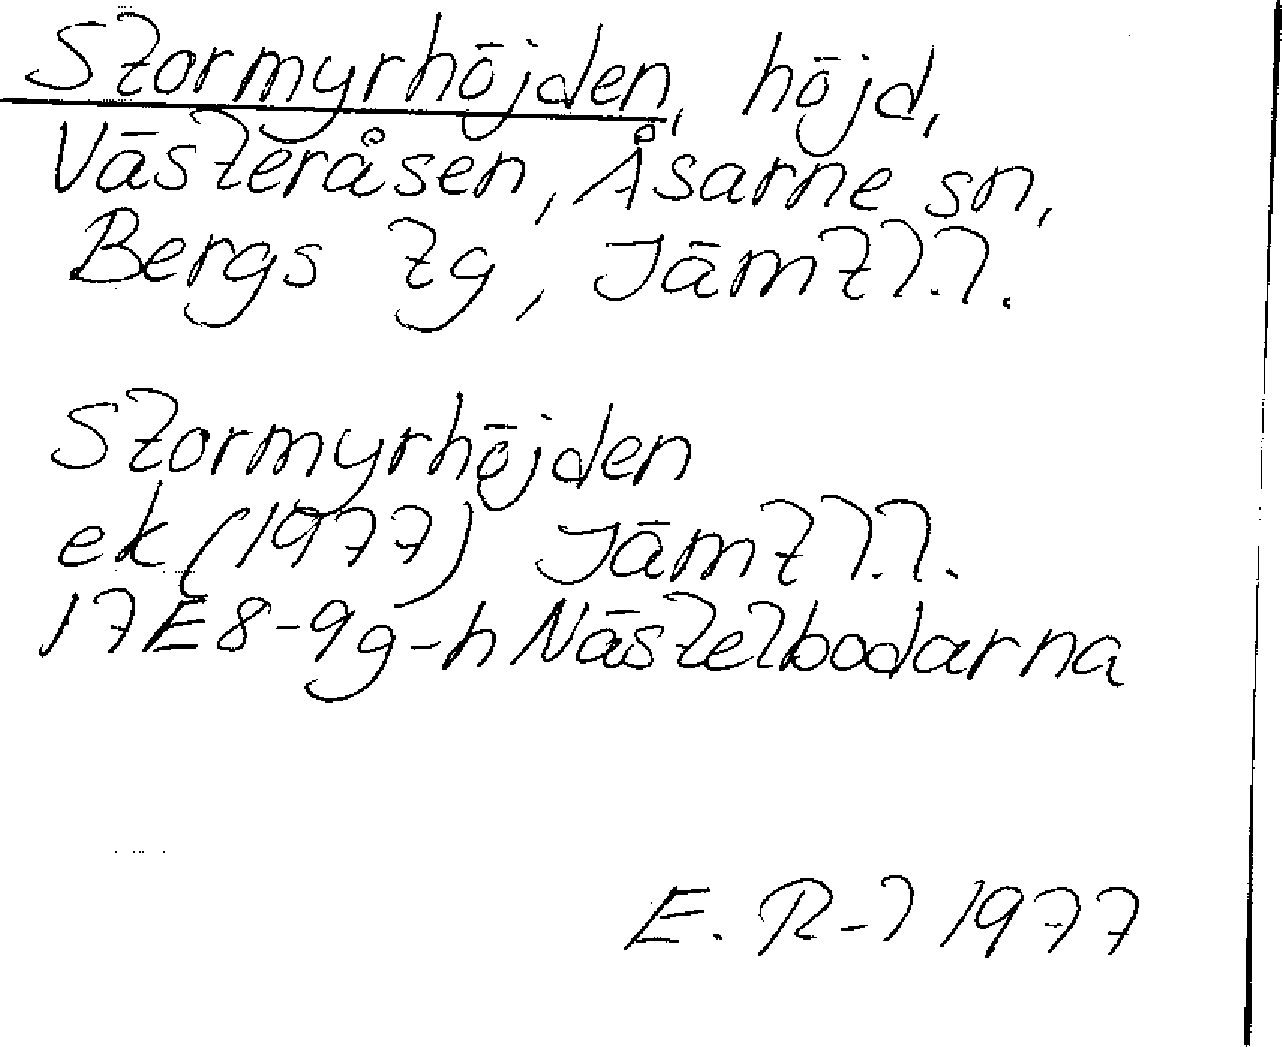 Stormyrhöjden, höjd,
Västeråsen, Åsarne sn,
Bergs tg, Jämtl.l.
Stormyrhöjden
ek (1977) Jämtl.l.
17E8-9g-h Nästelbodarna
E. R-l 1977